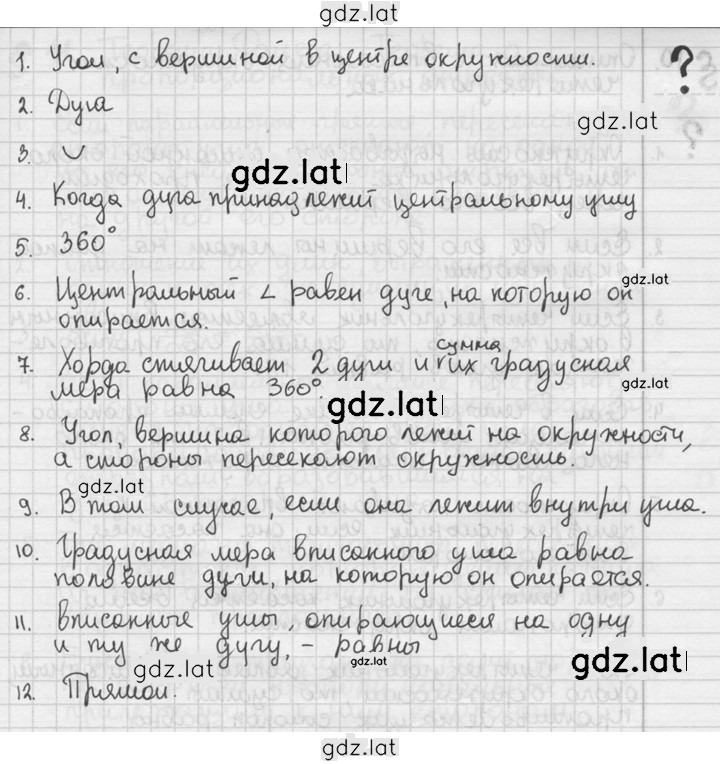 gdz.lat
1. Угол, с вершиной в центре окружности. ?
2. Дуга
gdz.lat
3. ◡
gdz.lat
4. Когда дуга принадлежит центральному углу
5. 360°
gdz.lat
6. Центральный ∠ равен дуге, на которую он
опирается.
7. Хорда стягивает 2 дуги и сумма их градусная
мера равна 360°.
gdz.lat
gdz.lat
8. Угол, вершина которого лежит на окружности,
а стороны пересекают окружность.
gdz.lat
9. В том случае, если она лежит внутри угла.
10. Градусная мера вписанного угла равна
половине дуги, на которую он опирается.
11. Вписанные углы, опирающиеся на одну
и ту же дугу, - равны
gdz.lat
gdz.lat
gdz.lat
12. Прямой.
gdz.lat